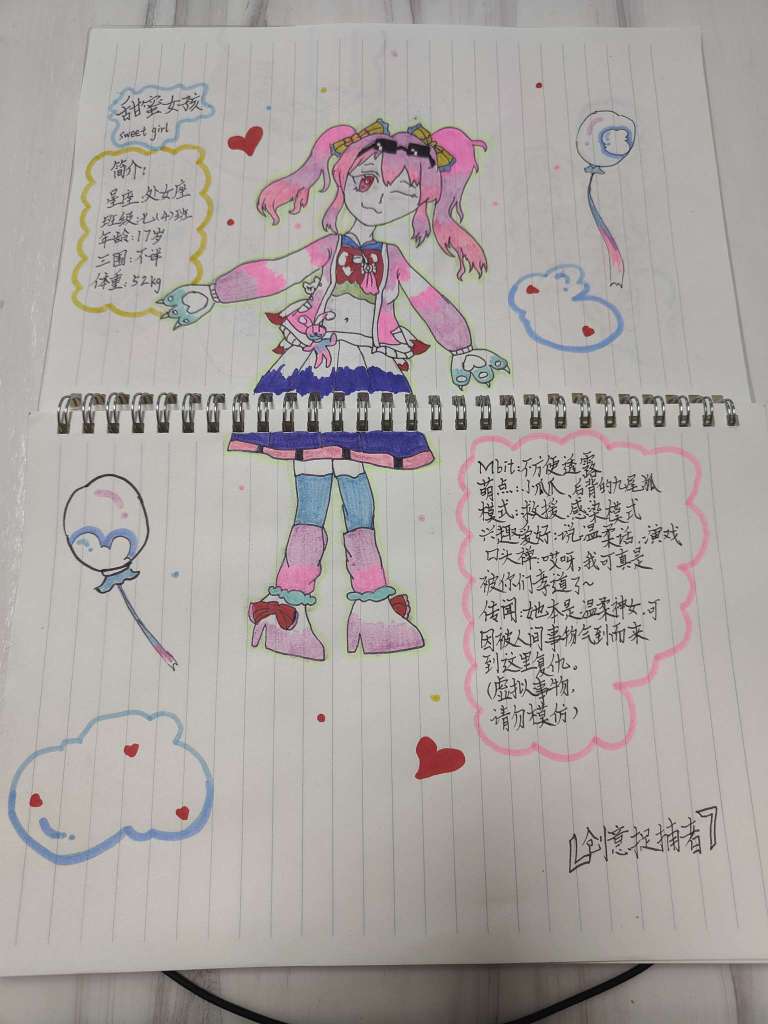 甜蜜女孩
sweet girl
简介:
星座:处女座
班级:七(4)班
年龄:17岁
三围:不详
体重:52kg
Mbit:不方便透露
萌点:小瓜爪、后背的九尾狐
模式:救援、感染模式
兴趣爱好:说温柔话、演戏
口头禅:哎呀,我可真是
被你们李道了~
传闻:她本是温柔神女,可
因被人间事物气到而来
到这里复仇。
(虚拟事物,
请勿模仿)
创意捉捕者